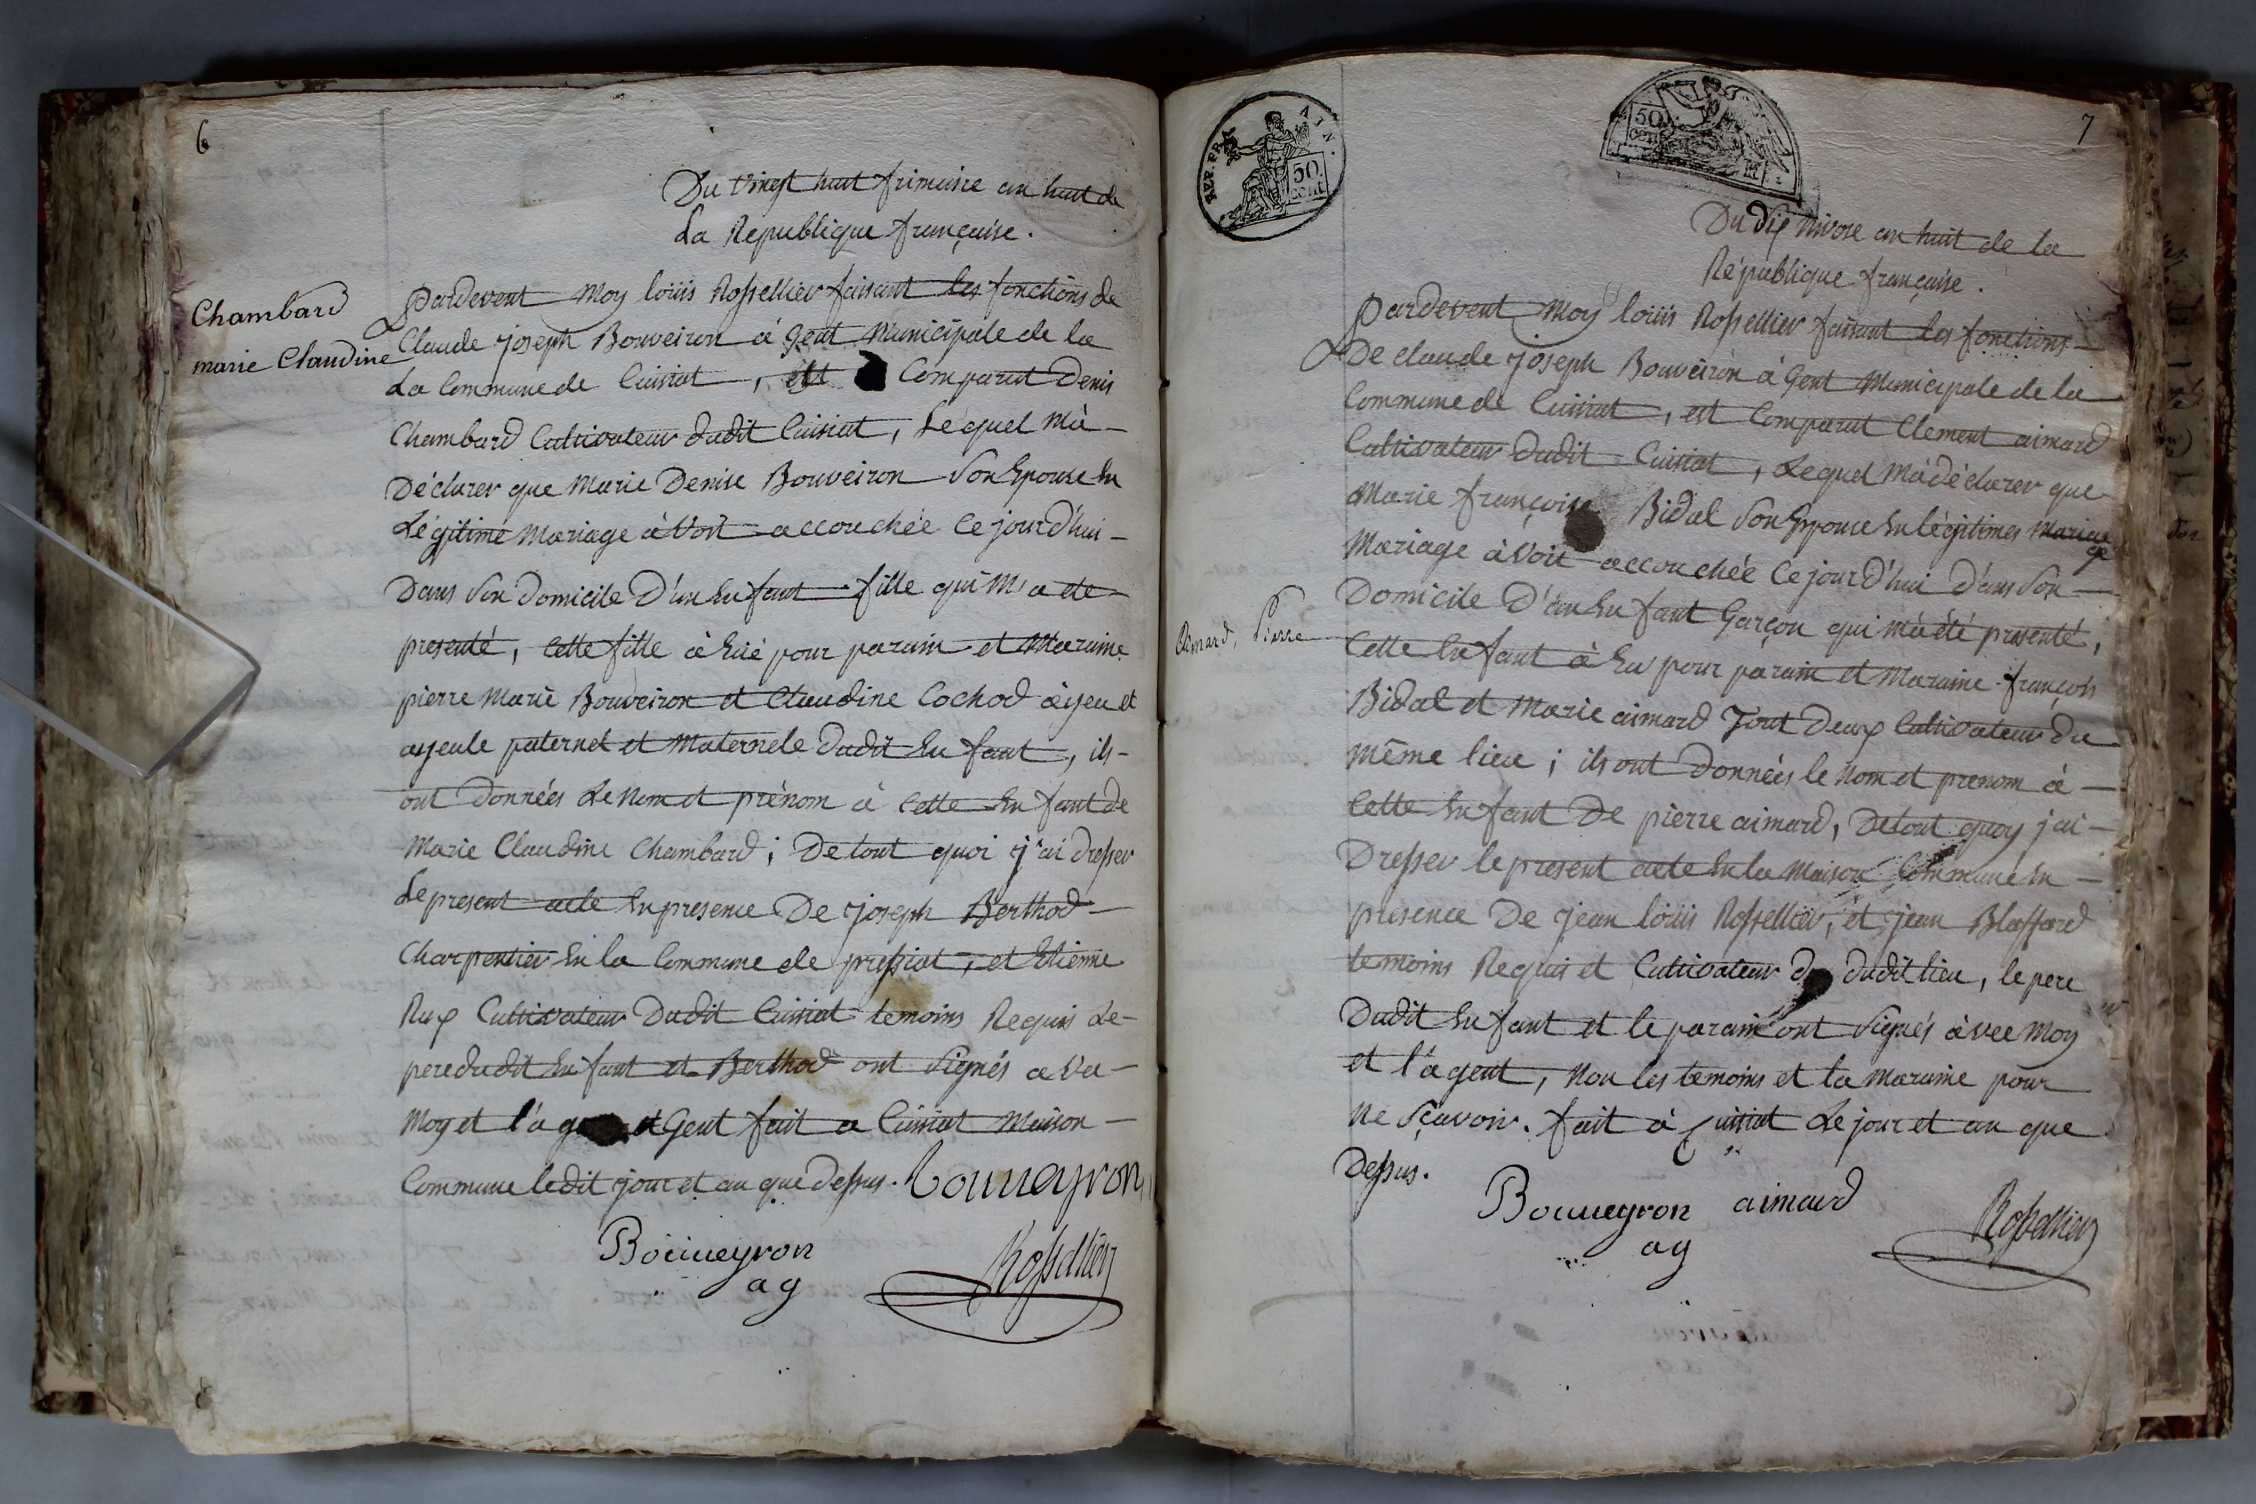 6
Du Vingt huit frimaire an huit de
La Republique françaïse.
Chambard
marie Claudine
Pardevent Moy loüis Rossellier faisant les fonctions de
Claude joseph Bouveiron à Gent Municipale de la
La Commune de Cuisiat, est Comparut Denis
Chambard Cultivateur dudit Cuisiat, Lequel Mà
Déclarer que Marie Denise Bouveiron Son Epouse En
Légitime Mariage à Voit accouchée Ce jourd'hui
Dans Son Domicile D'un Enfant fille qui M'a ete
presenté, Cette fille à Eüé pour parain et Maraine
pierre Marie Bouveiron et Claudine Cochod àyeu et
ayeule paternel et Maternele dudit Enfant, ils
ont données Le Nom et prénom à Cette Enfant de
Marie Claudine Chambard; De tout quoi j'ai dresser
Le present acte En presence De joseph Berthod
Charpentier En la Commune de pressiat, et Etienne
Rux Cultivateur Dudit Cuisiat temoins Requis Le
pere dudit Enfant et Berthod ont Signés a Va
Moy et l'à Gent fait a Cuisiat Maison
Commune ledit jour et an que Dessus. bouueyron
Boüueyron
ag
Rossellier
REP. FRA AIN.
50
cent
50
cent
7
Du dix Nivose an huit de la
République françaïse.
Pardevent Moy loüis Rossellier faisant les fonctions
De claude joseph Bouveiron à Gent Municipale de la
Commune de Cuisiat, est Comparut Clement aimard
Cultivateur Dudit Cuisiat, Lequel Mà déclarer que
Marie françoise Bidal Son Epouse En légitimes Mariage
Mariage à Voit accouchée Ce jourd'hui D'ans Son
Aimard, Pierre
Domicile D'un Enfant Garçon qui Mà été presenté,
Cette Enfant à Eu pour parain et Maraine françois
Bidal et Marie aimard Tout Deux Cultivateur du
même lieu; ils ont données le Nom et prenom à
Cette Enfant De pierre aimard, De tout quoy j'ai
Dresser le present acte En la Maison Commune En
presence De jean loüis Rossellier, et jean Blassard
temoins Requis et Cultivateur dudit lieu, le pere
Dudit Enfant et le parain ont Signés àvec Moy
et l'àgent, Non les temoins et la Maraine pour
Ne Sçavoir. fait à Cuisiat Le jour et an que
Dessus.
Bouueyron aimard
ag
Rossellier